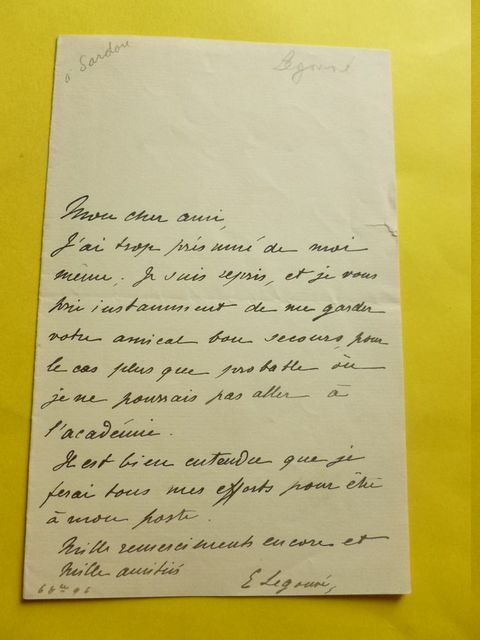 à Sardou
Legouvé
Mon cher ami,
J'ai trop présumé de moi
même ; Je suis repris, et je vous
prie instamment de me garder
votre amical bon secours, pour
le cas plus que probable où
je ne pourrais pas aller à
l'académie.
Il est bien entendu que je
ferai tous mes efforts pour être
à mon poste.
Mille remerciments encore et
Mille amitiés
E Legouvé,